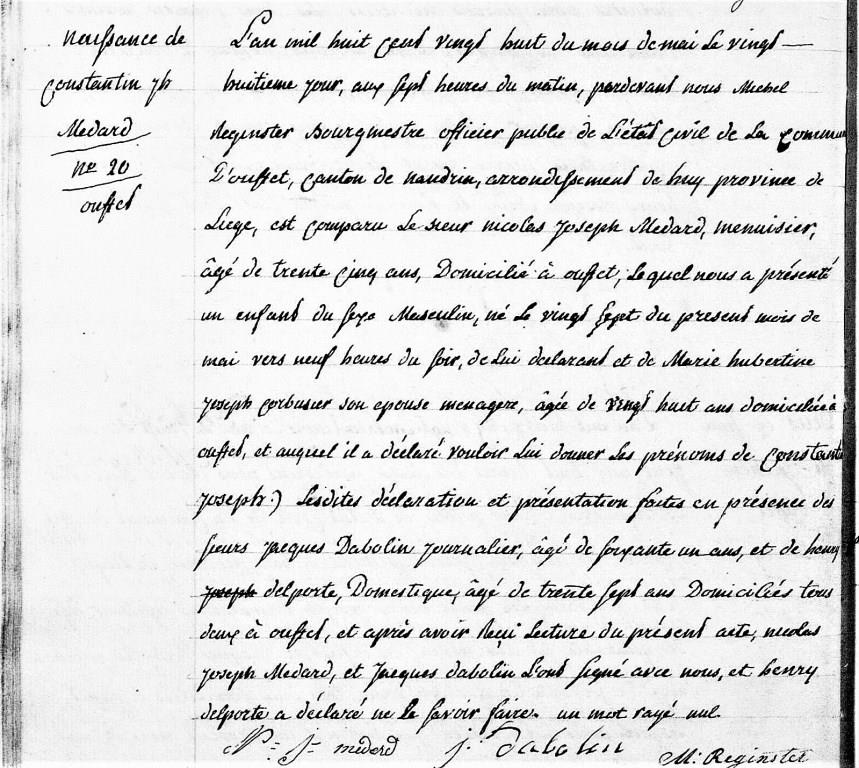 naissance de
Constantin jph
Medard
no 20
ouffet
L'an mil huit cent vingt huit du mois de mai le vingt
huitieme jour, aux sept heures du matin, pardevant nous Michel
Reginster Bourgmestre officier public de L'état Civil de La commun
D'ouffet, canton de nandrin, arrondissement de huy province de
Liege, est comparu Le sieur nicolas Joseph Medard, menuisier,
âgé de trente cinq ans, Domicilié à ouffet, Lequel nous a présenté
un enfant du sexe Masculin, né Le vingt sept du present mois de
mai vers neuf heures du soir, de Lui déclarant et de Marie hubertine
Joseph Corbusier son epouse menagere, âgée de vingt huit ans domiciliée à
ouffet, et auquel il a déclaré vouloir Lui donner Les prénoms de Constantin
Joseph:) Lesdites déclaration et présentation faites en présence des
sieurs Jacques Dabolin Journalier, âgé de soixante un ans, et de henry
joseph delporte, Domestique, âgé de trente sept ans Domiciliés tous
deux à ouffet, et après avoir Reçu Lecture du présent acte, nicolas
Joseph Medard, et Jacques dabolin L'ont signé avec nous, et henry
delporte a déclaré ne le savoir faire. un mot rayé nul.
N= J= medard J: Dabolin M: Reginster